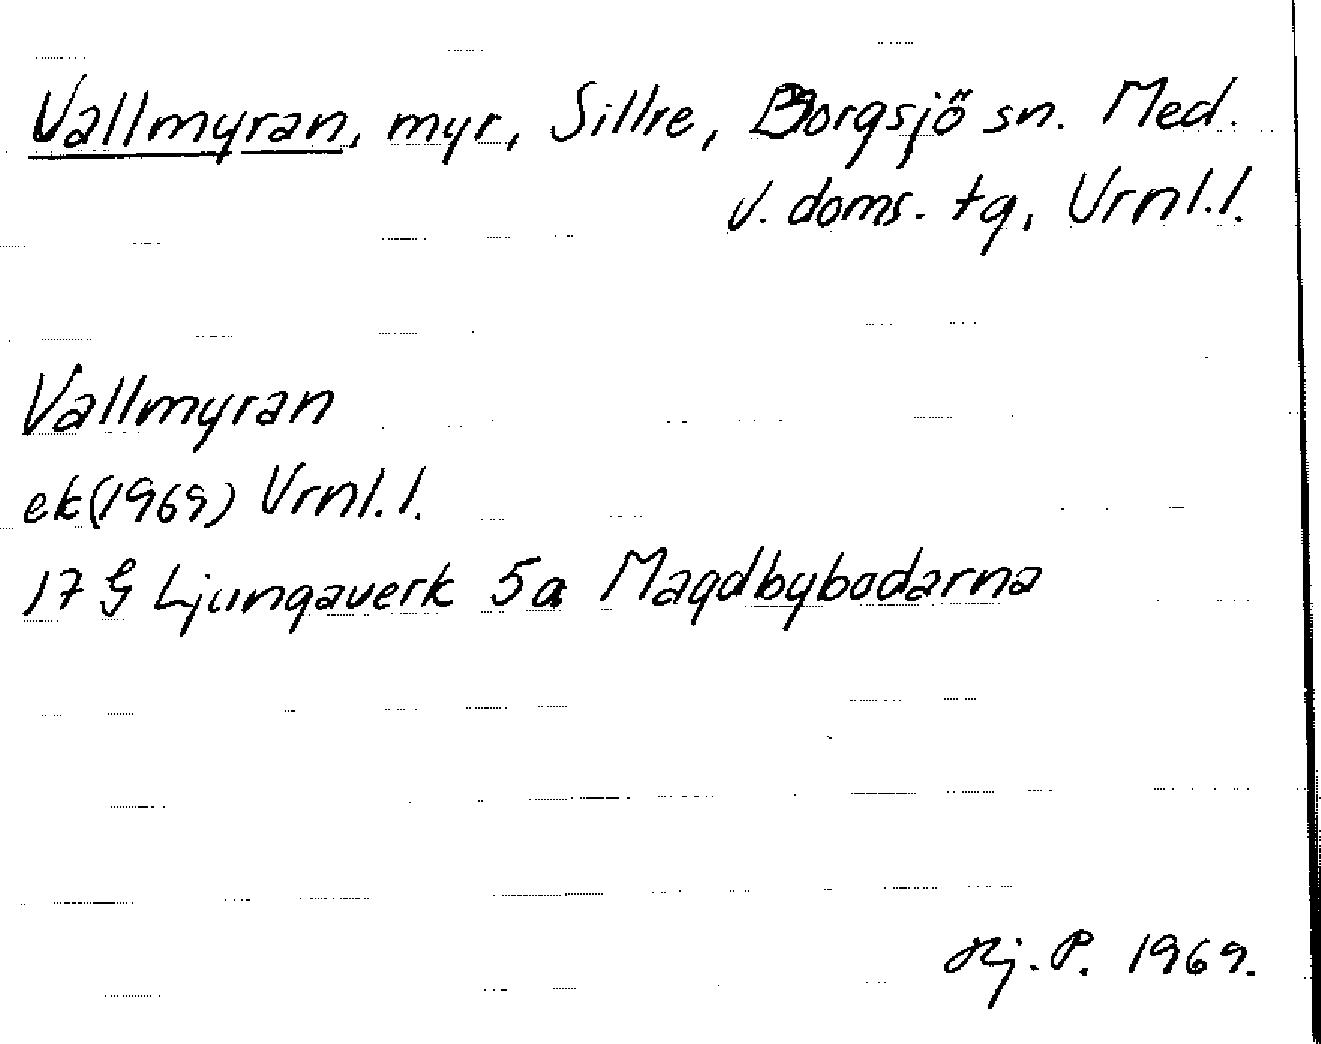 Vallmyran, myr, Sillre, Borgsjö sn. Med.
V. doms. tg, Vrnl.l.
Vallmyran
ek(1969) Vrnl.l.
17 G Ljungaverk 5a Magdbybodarna
Hj. P. 1969.